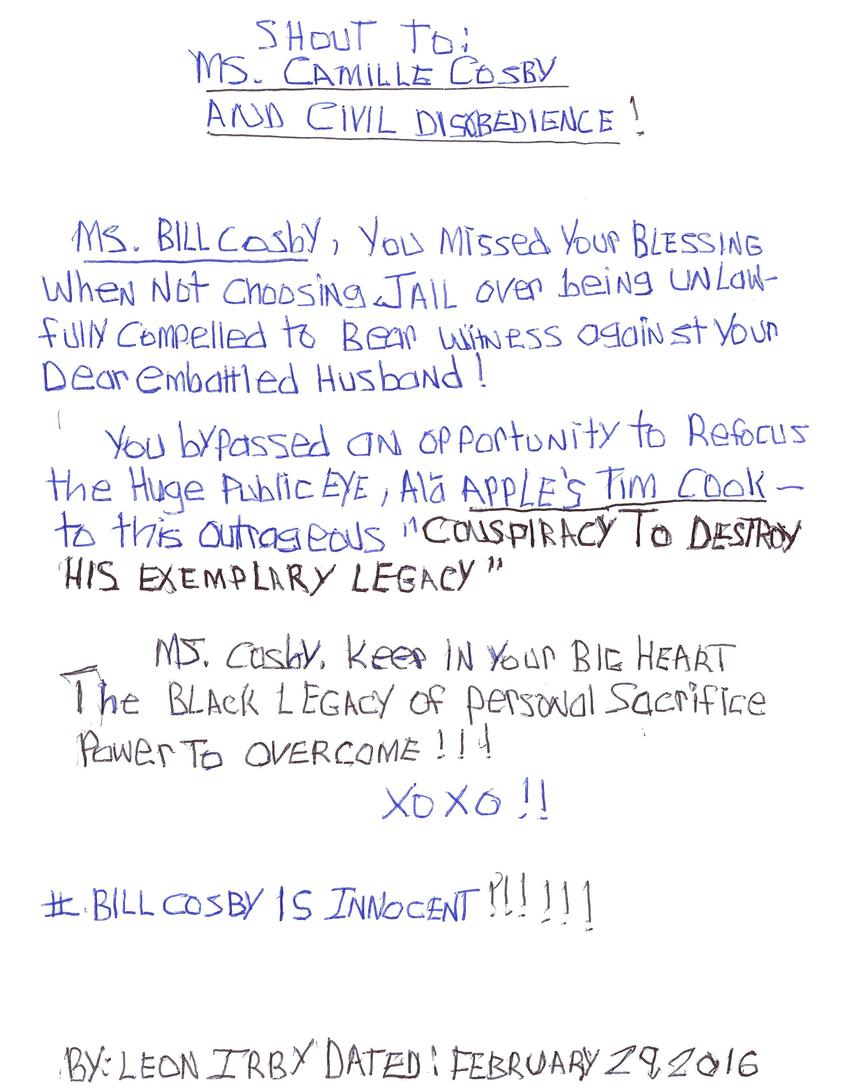 SHOUT TO:
MS. CAMILLE COSBY
AND CIVIL DISOBEDIENCE!
Ms. BILL Cosby, You Missed Your BLESSING
When Not choosing JAIL over being UNLaw-
fully Compelled to Bear Witness against Your
Dear embattled Husband!
You bypassed an opportunity to Refocus
the Huge Public EYE, Alá APPLE'S TIM COOK –
to this outrageous "CONSPIRACY To DESTROY
HIS EXEMPLARY LEGACY"
MS. Cosby, Keep IN Your BIG HEART
The BLACK LEGACY of personal Sacrifice
Power To OVERCOME!!!
XOXO!!
#BILL COSBY IS INNOCENT!!!!!!
BY: LEON IRBY DATED: FEBRUARY 29, 2016